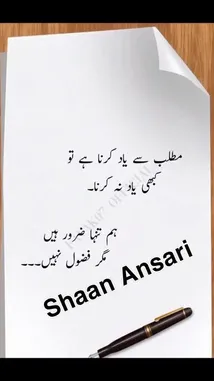 مطلب سے یاد کرنا ہے تو
کبھی یاد نہ کرنا۔
ہم تنہا ضرور ہیں
مگر فضول نہیں۔۔۔
Shaan Ansari